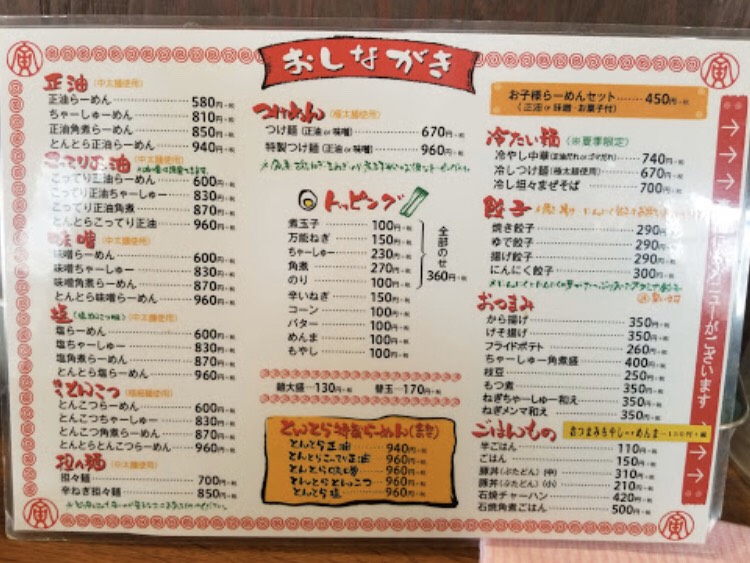 おしながき
正油(中太麺使用)
正油らーめん 580円+税
ちゃーしゅーめん 810円+税
正油角煮らーめん 850円+税
とんとら正油らーめん 940円+税
こってり正油
こってり正油らーめん 600円+税
こってり正油ちゃーしゅー 830円+税
こってり正油角煮 870円+税
とんとらこってり正油 960円+税
味噌(中太麺使用)
味噌らーめん 600円+税
味噌ちゃーしゅー 830円+税
味噌角煮らーめん 870円+税
とんとら味噌らーめん 960円+税
塩
(中太麺使用)
塩らーめん 600円+税
塩ちゃーしゅー 830円+税
塩角煮らーめん 870円+税
とんとら塩らーめん 960円+税
とんこつ
とんこつらーめん 600円+税
とんこつちゃーしゅー 830円+税
とんこつ角煮らーめん 870円+税
とんとらとんこつらーめん 960円+税
担々麺(中太麺使用)
担々麺 700円+税
辛ねぎ担々麺 850円+税
つけめん(極太麺使用)
つけ麺(正油 or 味噌) 670円+税
特製つけ麺(正油 or 味噌) 960円+税
トッピング
煮玉子 100円+税
万能ねぎ 150円+税
ちゃーしゅー 230円+税
角煮 270円+税
のり 100円+税
全部のせ 360円+税
辛いねぎ 150円+税
コーン 100円+税
バター 100円+税
めんま 100円+税
もやし 100円+税
麺大盛…130円+税 替玉…170円+税
とんとら特製らーめん
とんとら正油 940円+税
とんとらこってり正油 960円+税
とんとら 960円+税
とんとらとんこつ 960円+税
とんとら塩 960円+税
お子様らーめんセット 450円+税
(正油 or 味噌・お菓子付)
冷たい麺(※夏季限定)
冷やし中華(正油だれ or ゴマだれ) 740円+税
冷しつけ麺(極太麺使用) 670円+税
冷し坦々まぜそば 700円+税
餃子
焼き餃子 290円+税
ゆで餃子 290円+税
揚げ餃子 290円+税
にんにく餃子 300円+税
おつまみ
から揚げ 350円+税
げそ揚げ 350円+税
フライドポテト 260円+税
ちゃーしゅー角煮盛 400円+税
枝豆 250円+税
もつ煮 350円+税
ねぎちゃーしゅー和え 350円+税
ねぎメンマ和え 350円+税
ごはんもの
半ごはん 110円+税
ごはん 150円+税
豚丼(ぶたどん)(中) 310円+税
豚丼(ぶたどん)(小) 210円+税
石焼チャーハン 420円+税
石焼角煮ごはん 500円+税
メニューがございます